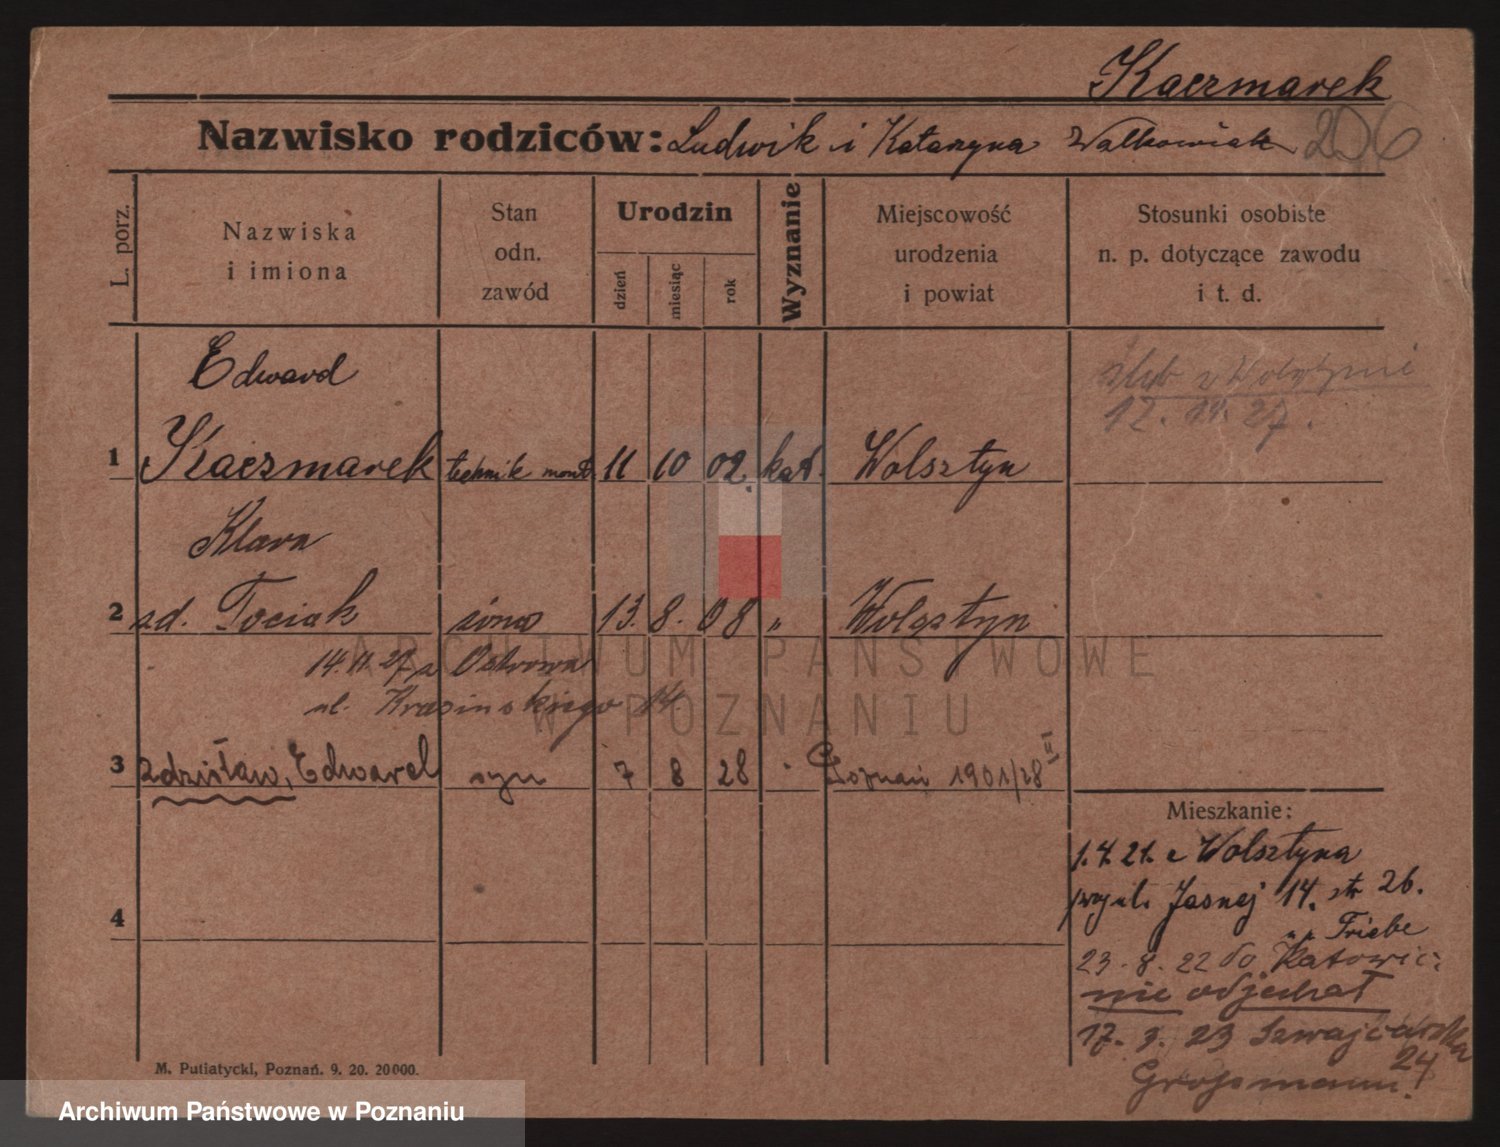 Kaczmarek
Nazwisko rodziców: Ludwik i Katarzyna Walkowiak 206
L. porz.
Nazwiska
i imiona
Stan
odn.
zawód
Urodzin
dzień
miesiąc
rok
Wyznanie
Miejscowość
urodzenia
i powiat
Stosunki osobiste
n. p. dotyczące zawodu
i t. d.
Edward
ślub w Wolsztynie
12. 11. 27.
1 Kaczmarek technik mont. 11 10 02. kat. Wolsztyn
Klara
2 zd. Tociak żona 13. 8. 08 „ Wolsztyn
14. 11. 27 z Ostrowa
ul. Krasińskiego 14.
3 Zdzisław, Edward syn 7 8 28 Poznań 1901/28
Mieszkanie:
1. 4. 21. z Wolsztyna
przy ul. Jasnej 14. str 26.
Triebe
23. 8. 22 do Katowic
nie odjechał
17. 3. 23 Szwajcarska
24
Grossmann.
4
M. Putiatycki, Poznań. 9. 20. 20000.
ARCHIWUM PAŃSTWOWE
W POZNANIU
Archiwum Państwowe w Poznaniu